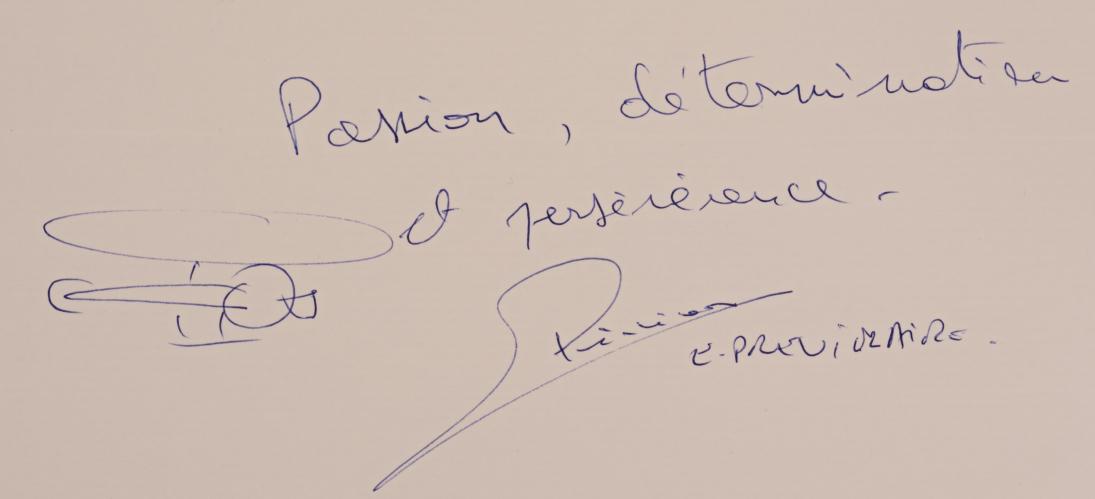 Passion, détermination
et persévérence.
E. PREVIDZAIRE.